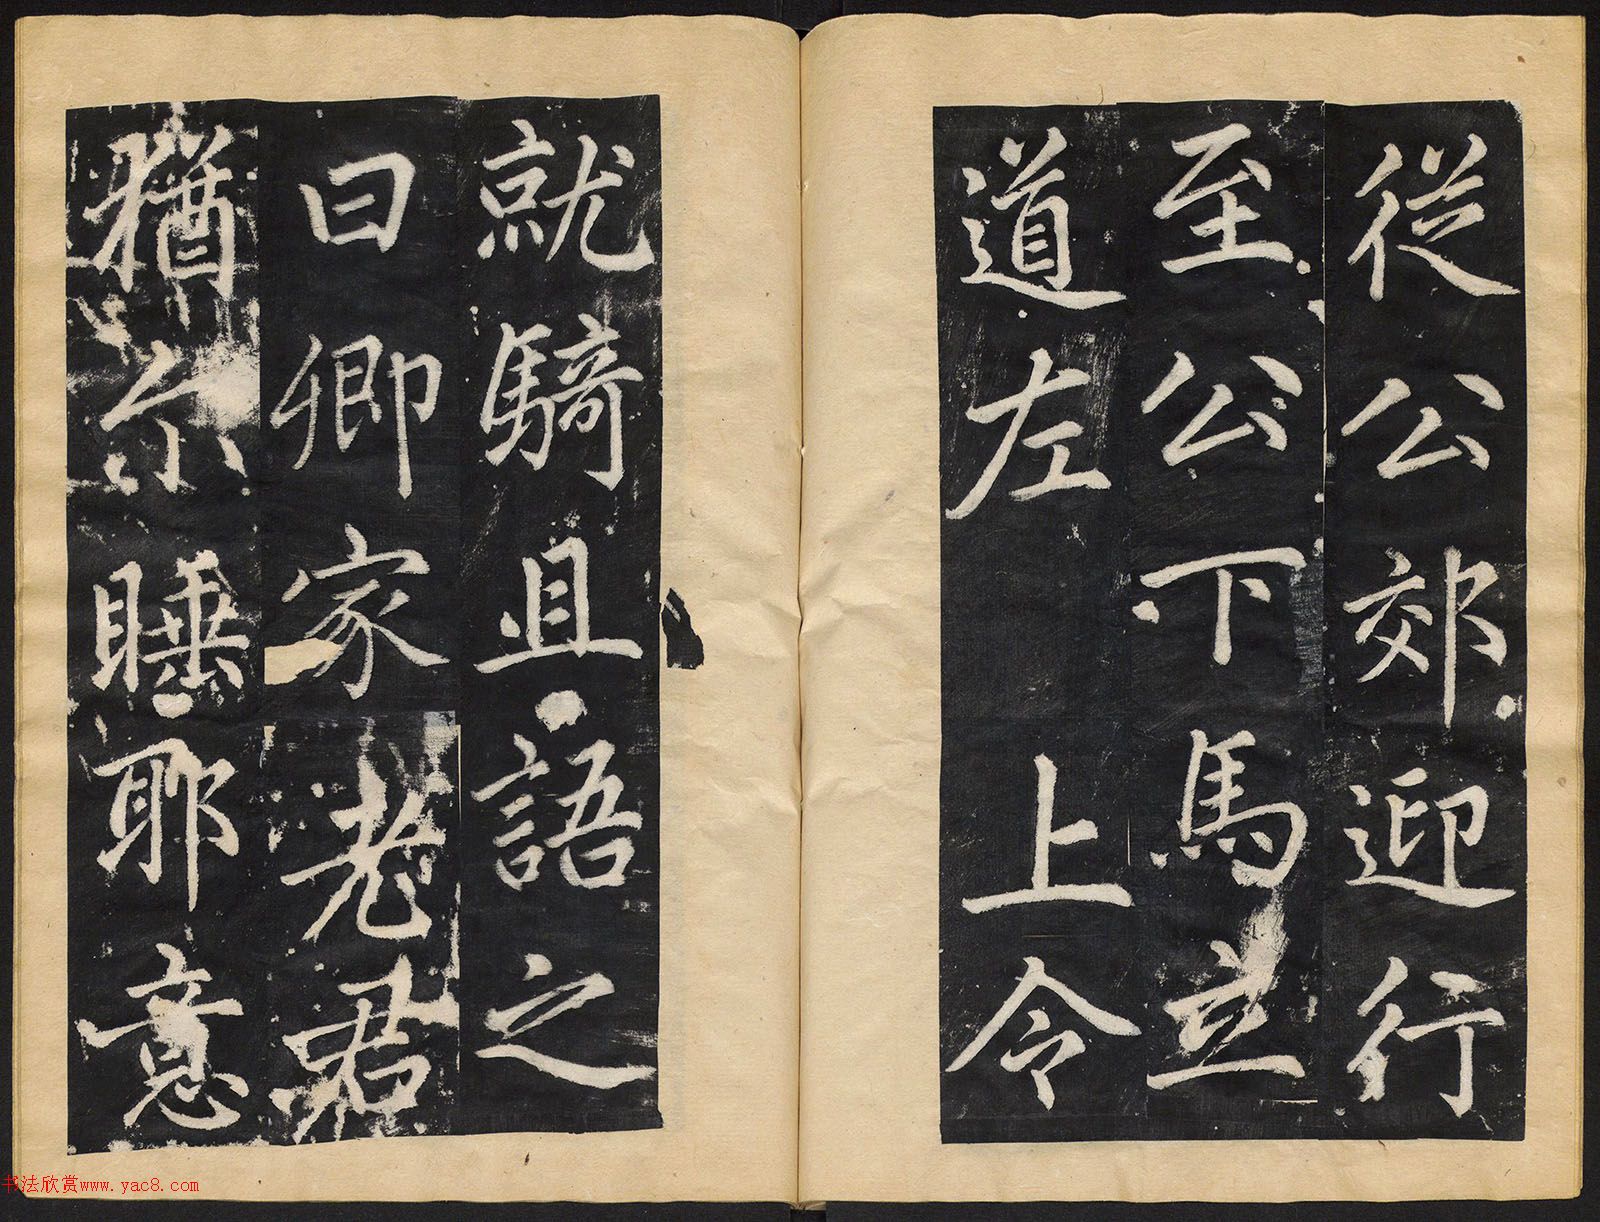 從公郊迎行
至公下馬立
道左 上令
就騎且語之
曰卿家老君
猶尒睡耶意
书法欣赏www.yac8.com